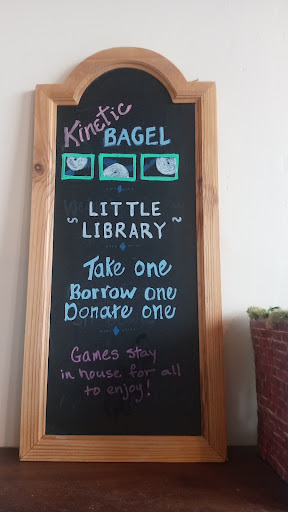 Kinetic
BAGEL
~ LITTLE ~
LIBRARY
Take one
Borrow one
Donate one
Games stay
in house for all
to enjoy!